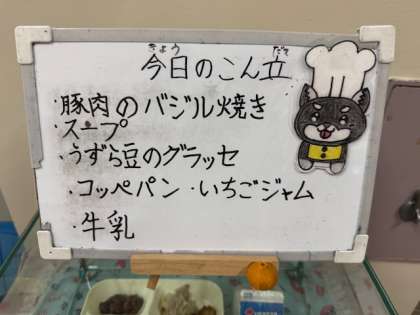 きょう だて
今日のこん立
・豚肉のバジル焼き
・スープ
・うずら豆のグラッセ
・コッペパン・いちごジャム
・牛乳